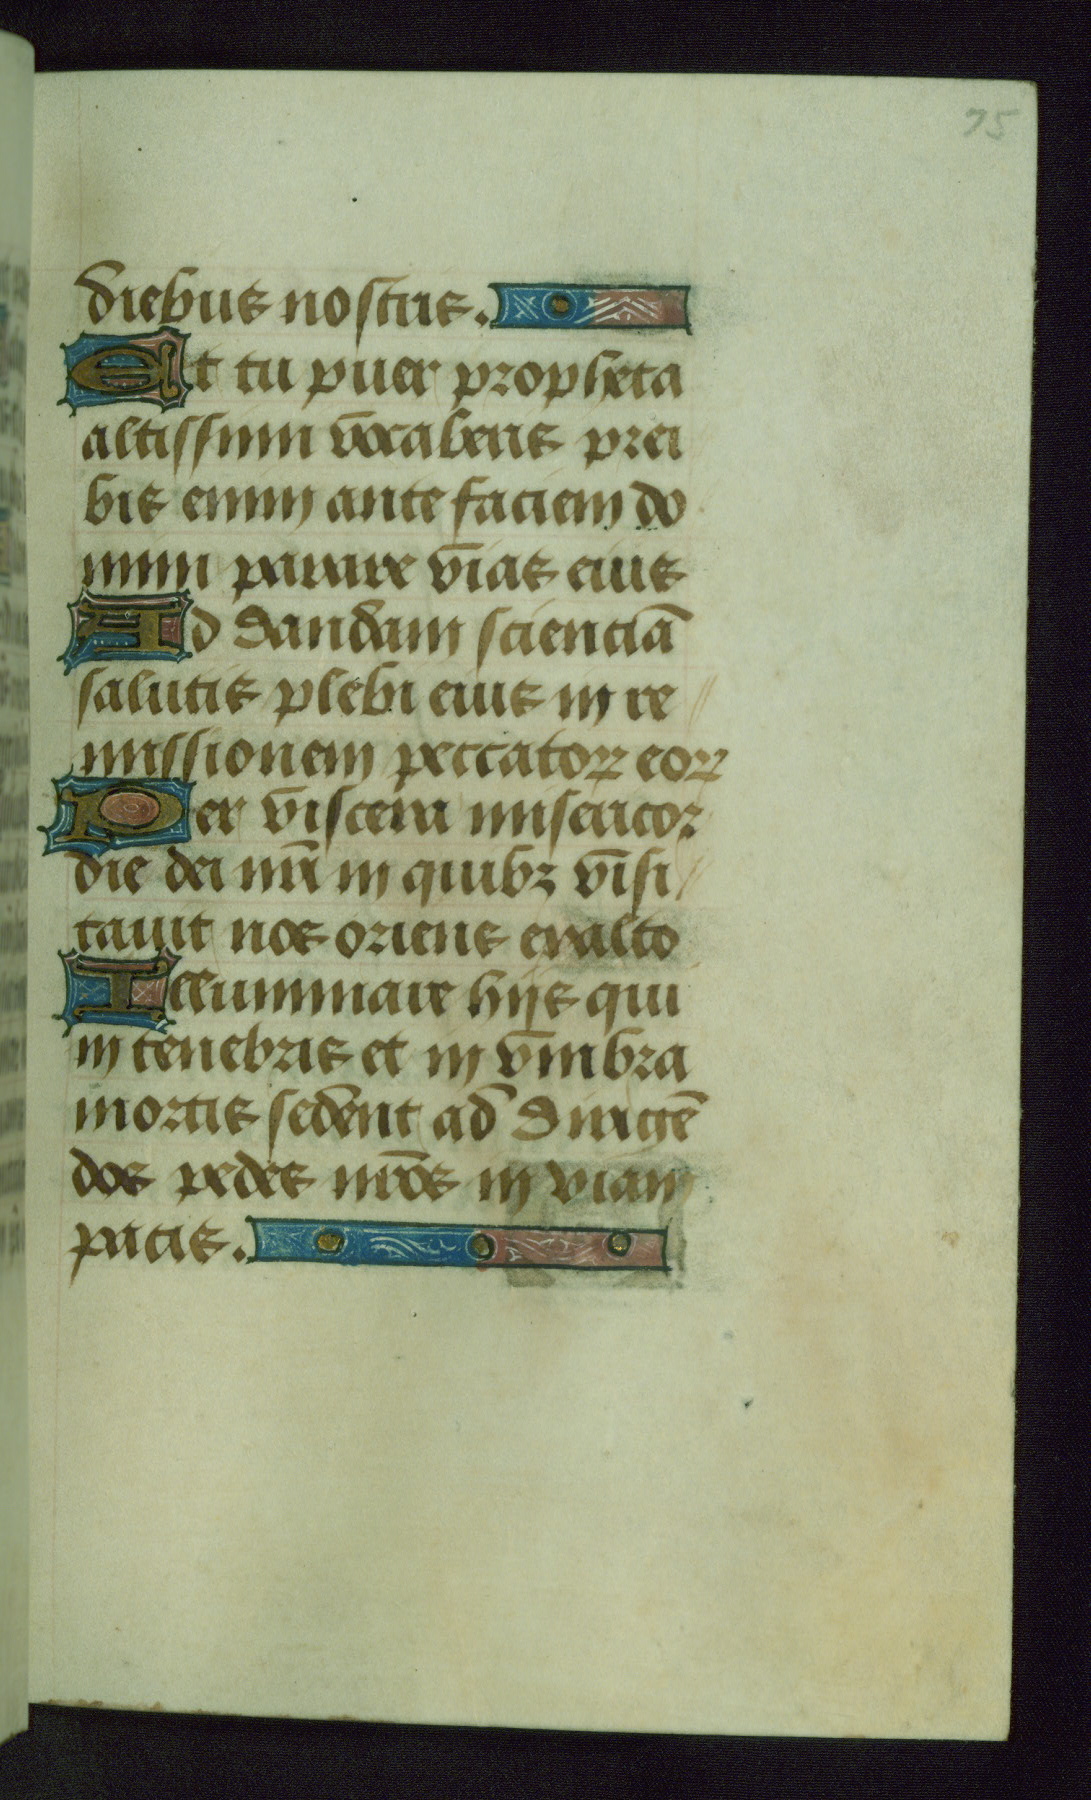 75
diebus nostris.
Et tu puer propheta
altissimi vocaberis prei
bis enim ante faciem do
mini parare vias eius
Ad dandam scienciā
salutis plebi eius in re
missionem peccatoꝝ eoꝝ
Per viscera misericor
die dei nr̄i in quibꝫ visi
tauit nos oriens exalto
Illuminare hijs qui
in tenebris et in vmbra
mortis sedent ad dirigē
dos pedes nr̄os in viam
pacis.